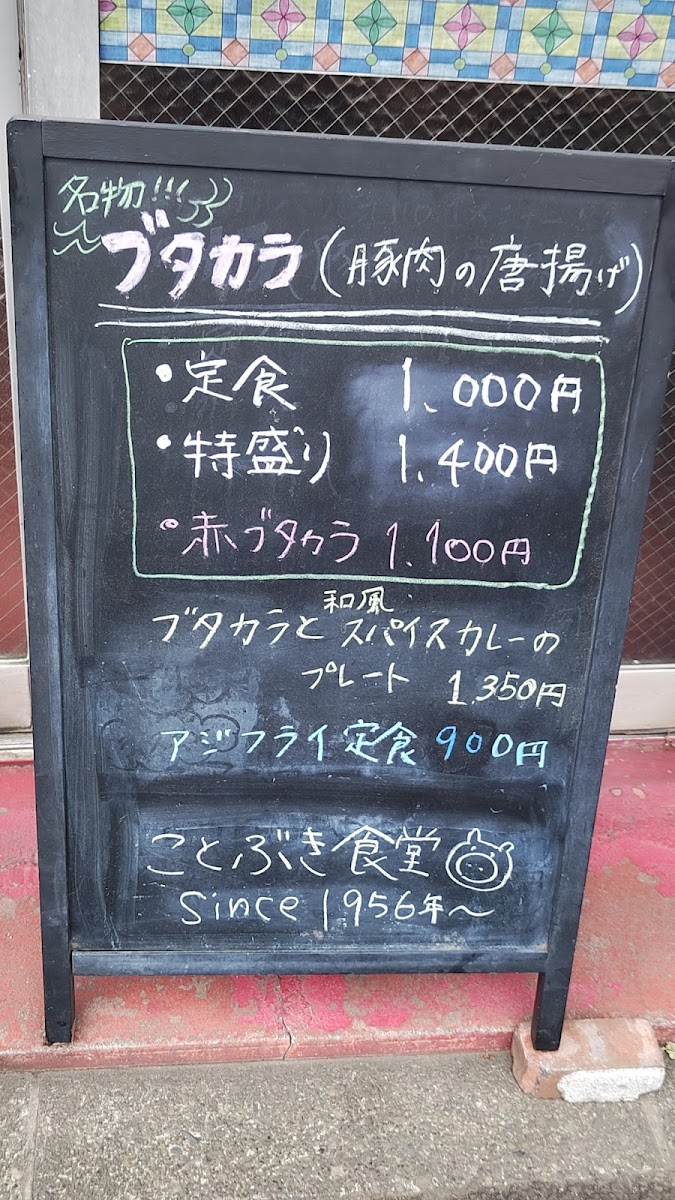 名物!!!
ブタカラ(豚肉の唐揚げ)
・定食 1,000円
・特盛り 1,400円
・赤ブタカラ 1,100円
和風
ブタカラとスパイスカレーの
プレート 1,350円
アジフライ定食 900円
ことぶき食堂
since 1956年~